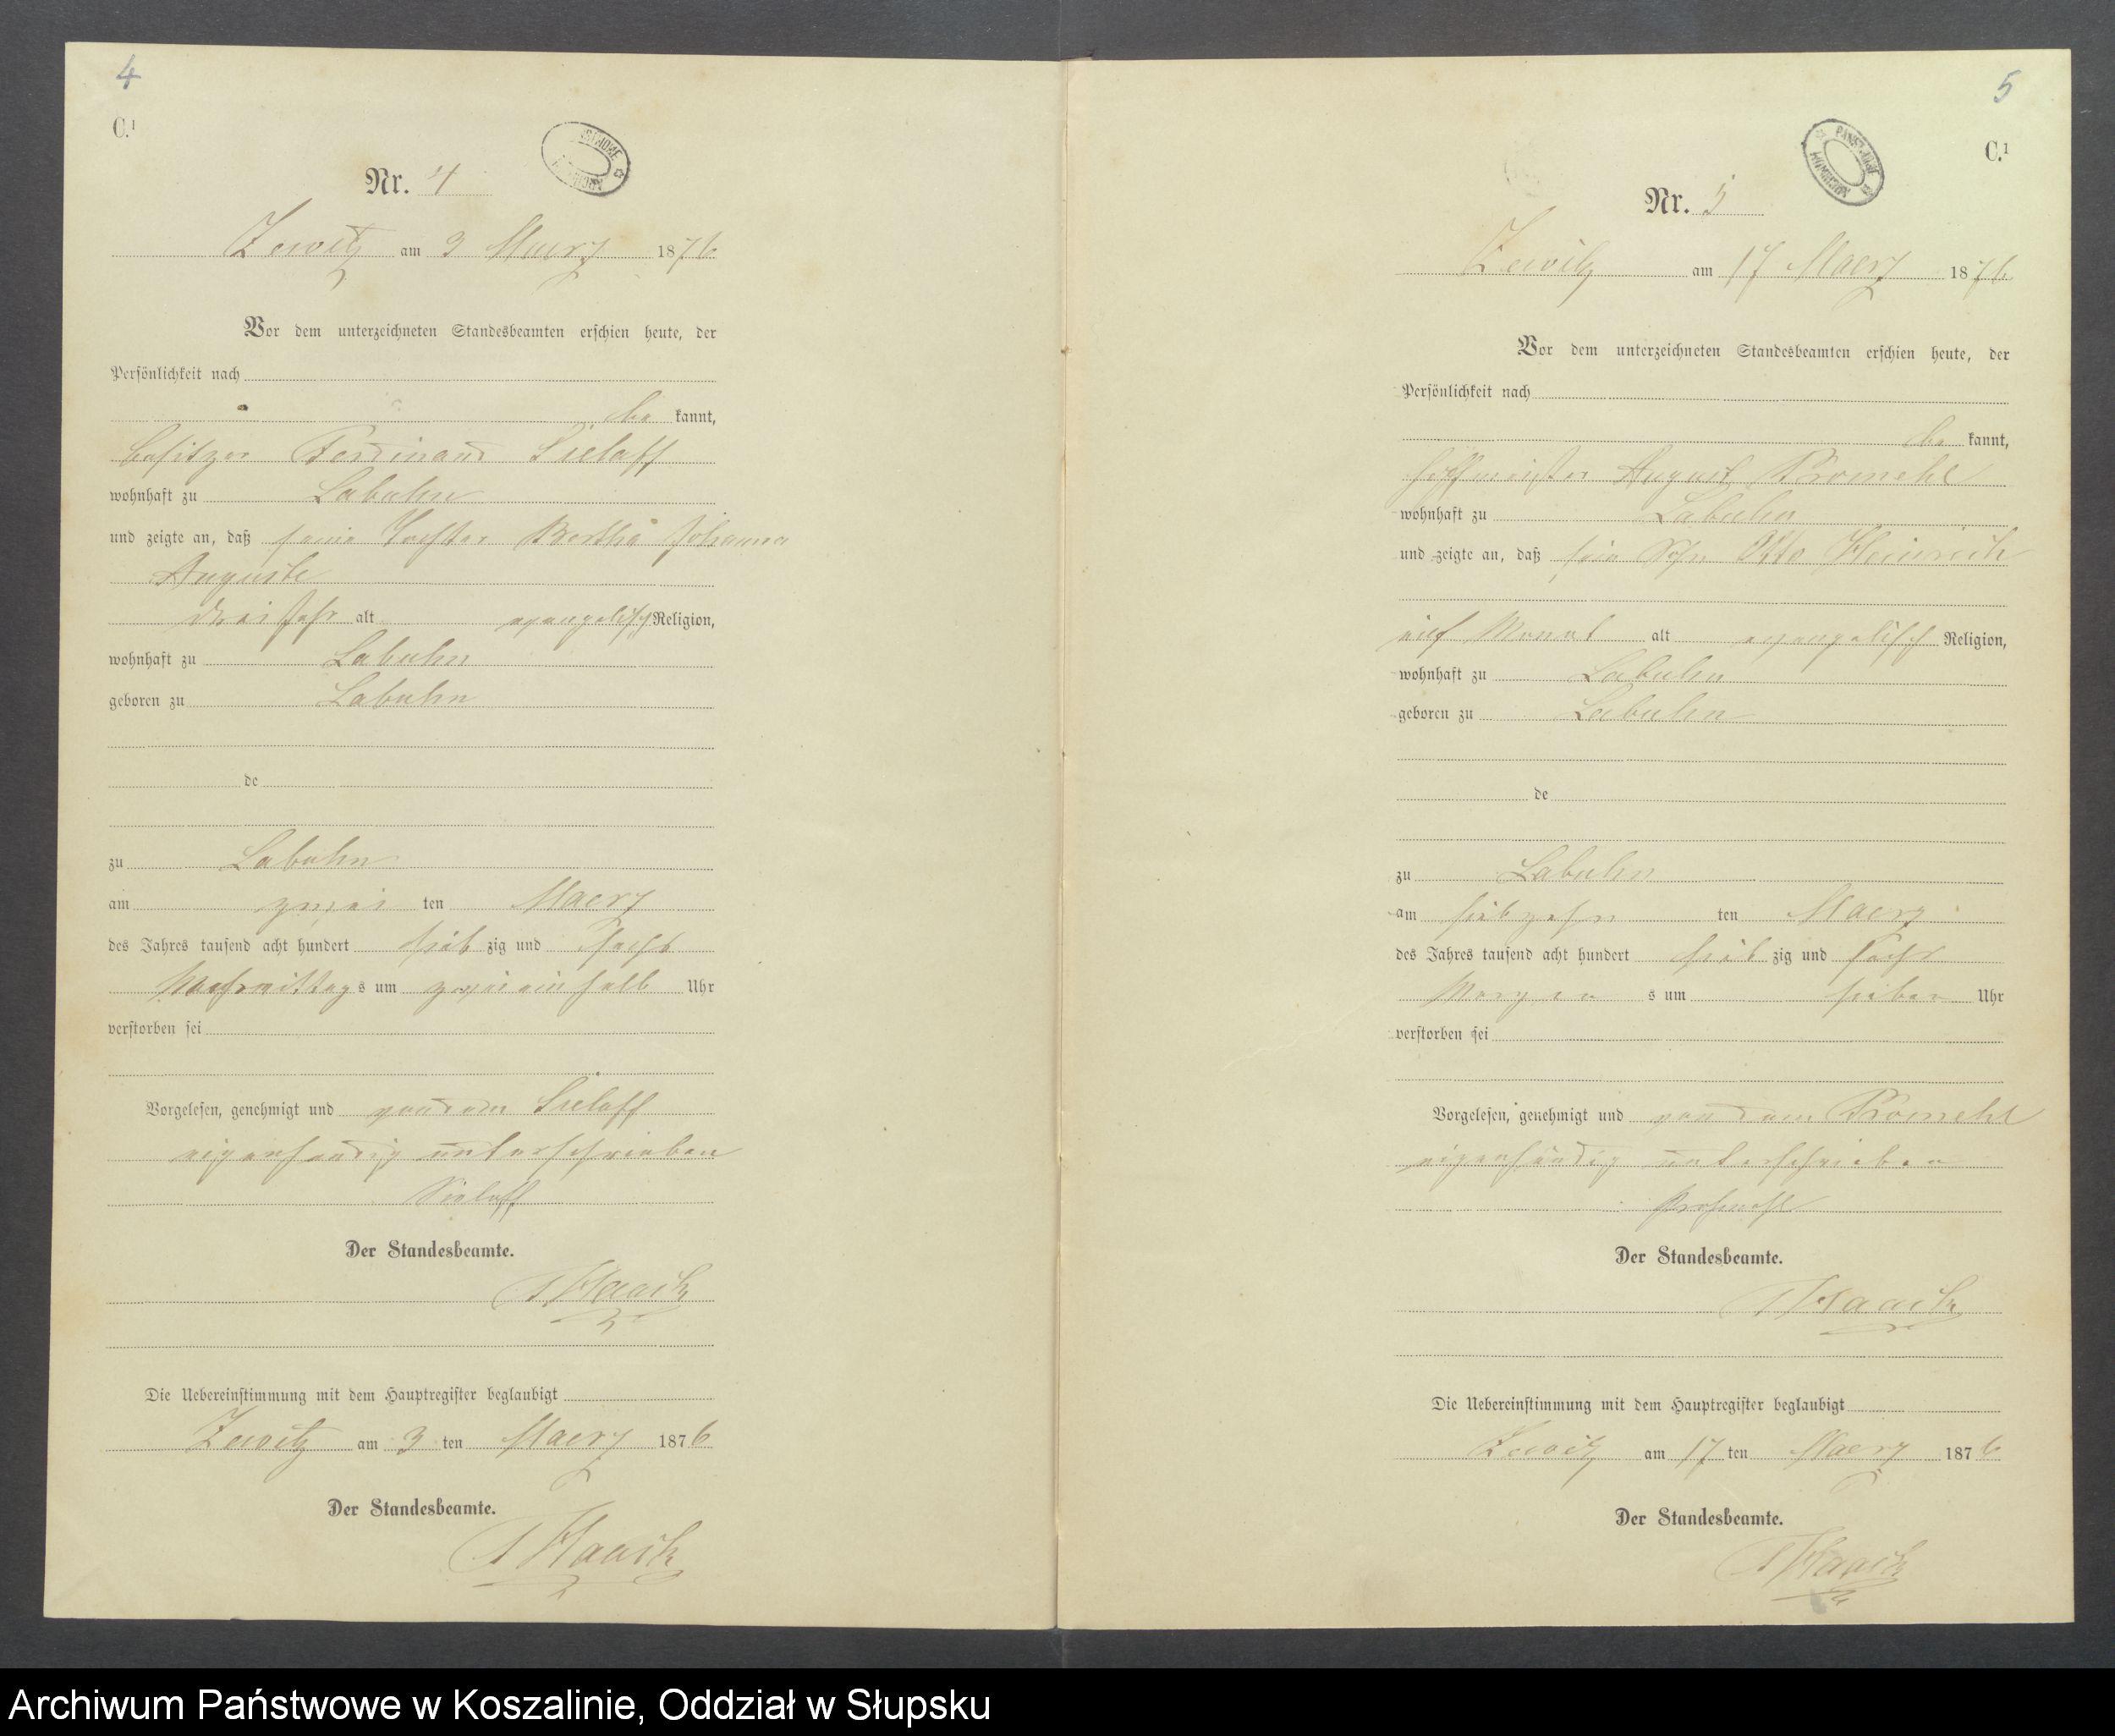 4
C.¹
Nr. 4
Zewitz am 3 Maerz 1876
Vor dem unterzeichneten Standesbeamten erschien heute, der
Persönlichkeit nach
be kannt,
Besitzer Ferdinand Sielaff
wohnhaft zu Labuhn
und zeigte an, daß seine Tochter Bertha Johanna
Auguste
drei Jahr alt evangelisch Religion,
wohnhaft zu Labuhn
geboren zu Labuhn
de
zu Labuhn
am zwei ten Maerz
des Jahres tausend acht hundert sieb zig und sechs
Nachmittag s um zweieinhalb Uhr
verstorben sei
Vorgelesen, genehmigt und von dem Sielaff
eigenhaendig unterschrieben
Sielaff
Der Standesbeamte.
Haack
Die Uebereinstimmung mit dem Hauptregister beglaubigt
Zewitz am 3 ten Maerz 1876
Der Standesbeamte.
Haack
5
C.¹
PAŃSTWOWE ARCHIWUM
Nr. 5
Zewitz am 17 Maerz 1876
Vor dem unterzeichneten Standesbeamten erschien heute, der
Persönlichkeit nach
be kannt,
Hofmeister August
wohnhaft zu Labuhn
und zeigte an, daß sein Sohn Otto Heinrich
elf Monat alt evangelisch Religion,
wohnhaft zu Labuhn
geboren zu Labuhn
de
zu Labuhn
am siebzehn ten Maerz
des Jahres tausend acht hundert sieb zig und sechs
Morgen s um sieben Uhr
verstorben sei
Vorgelesen, genehmigt und von dem
eigenhändig unterschrieben
Der Standesbeamte.
Haack
Die Uebereinstimmung mit dem Hauptregister beglaubigt
Zewitz am 17 ten Maerz 1876
Der Standesbeamte.
Haack
Archiwum Państwowe w Koszalinie, Oddział w Słupsku